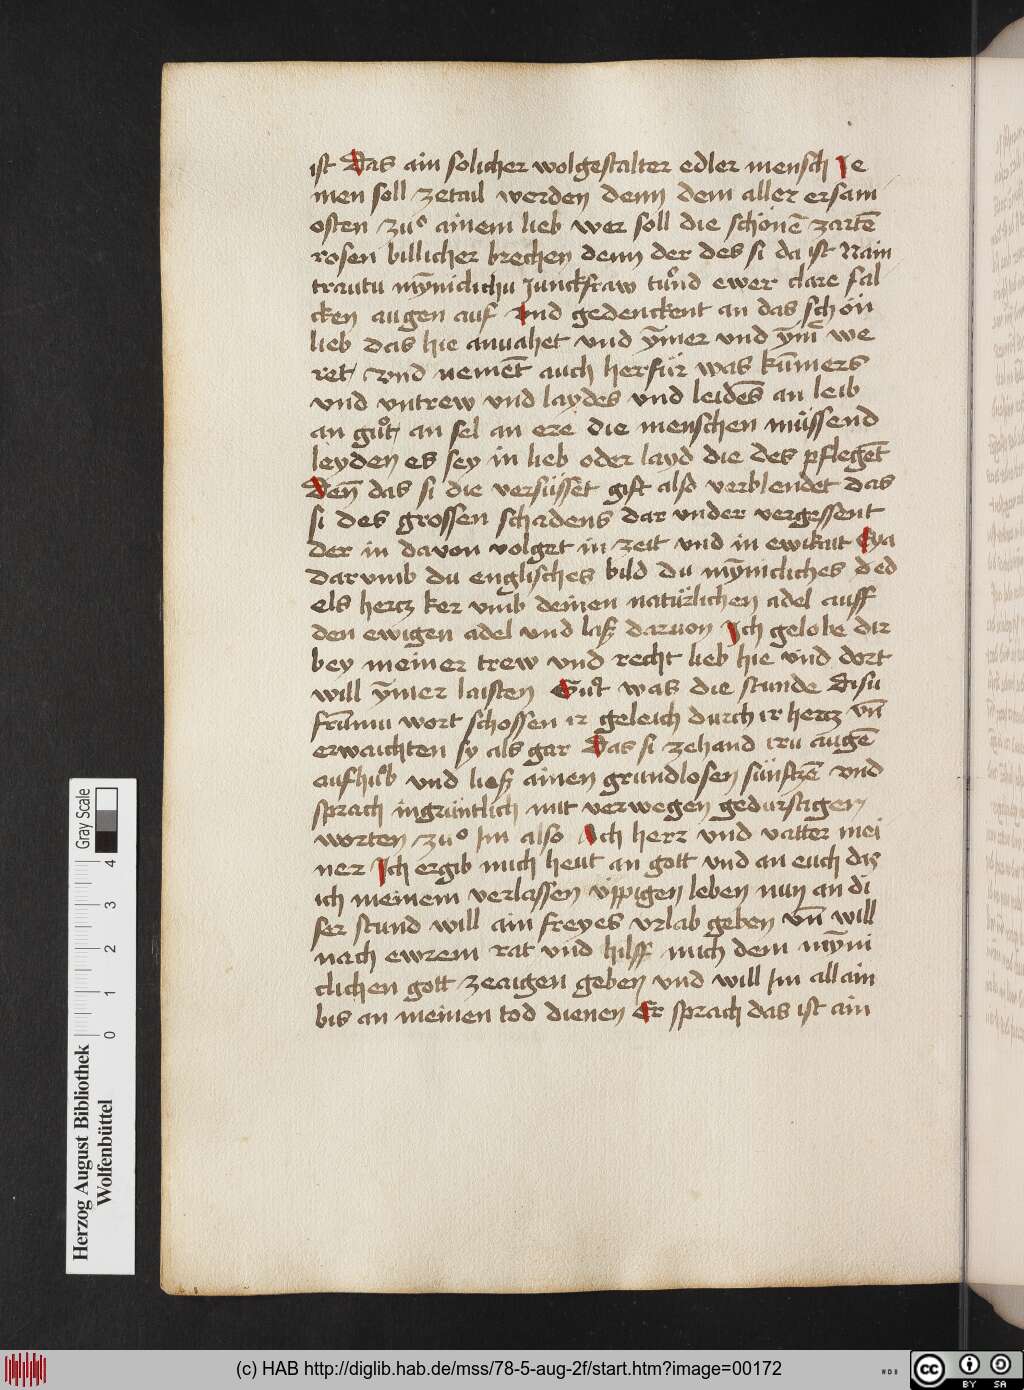 ist Das ain solicher wolgestalter edler mensch Ie
men soll zetail werden denn dem aller ersam
osten zuͦ ainem lieb wer soll die schönē zartē
rosen billicher brechen denn der des si da ist Nain
trautu mȳniclichu Junckfraw tuͦnd ewer clare fal
cken augen auf Vnd gedenckent an das schön
lieb das hie anuahet vnd ȳmer vnd ȳm̄ we
ret vnd nemēt auch herfür was kūmers
vnd vntrew vnd laydes vnd leidēs an leib
an guͦt an sel an ere die menschen müssend
leyden es sey in lieb oder layd die des pflegēt
Den̄ das si die versüsset gift also verblendet das
si des grossen schadens dar vnder vergessent
der in dauon volget in zeit vnd in ewikait Eya
darvmb du englisches bild du mȳnicliches ded
els hertz ker vmb deinen natürlichen adel auff
den ewigen adel vnd laß daruon Ich gelobe dir
bey meiner trew vnd recht lieb hie vnd dort
will ȳmer laisten Guͦt was die stunde Disu
frūmu wort schossen ir geleich durch ir hertz vn̄
erwaichten sy als gar Das si zehand iru augē
aufhuͦb vnd ließ ainen grundlosen sünftzē vnd
sprach ingrüntlich mit verwegen gedurstigen
worten zuͦ Im also Ach herr vnd vatter mei
ner Ich ergib mich heut an gott vnd an euch das
ich meinem verlassen üppigen leben nun an di
ser stund will ain freyes vrlab geben vn̄ will
nach ewrem rat vnd hilff mich dem mȳni
clichen gott zeaigen geben vnd will Im allain
bis an meinen tod dienen Er sprach das ist ain
Herzog August Bibliothek
Wolfenbüttel
Gray Scale
0 1 2 3 4
(c) HAB http://diglib.hab.de/mss/78-5-aug-2f/start.htm?image=00172
WDB
cc BY SA